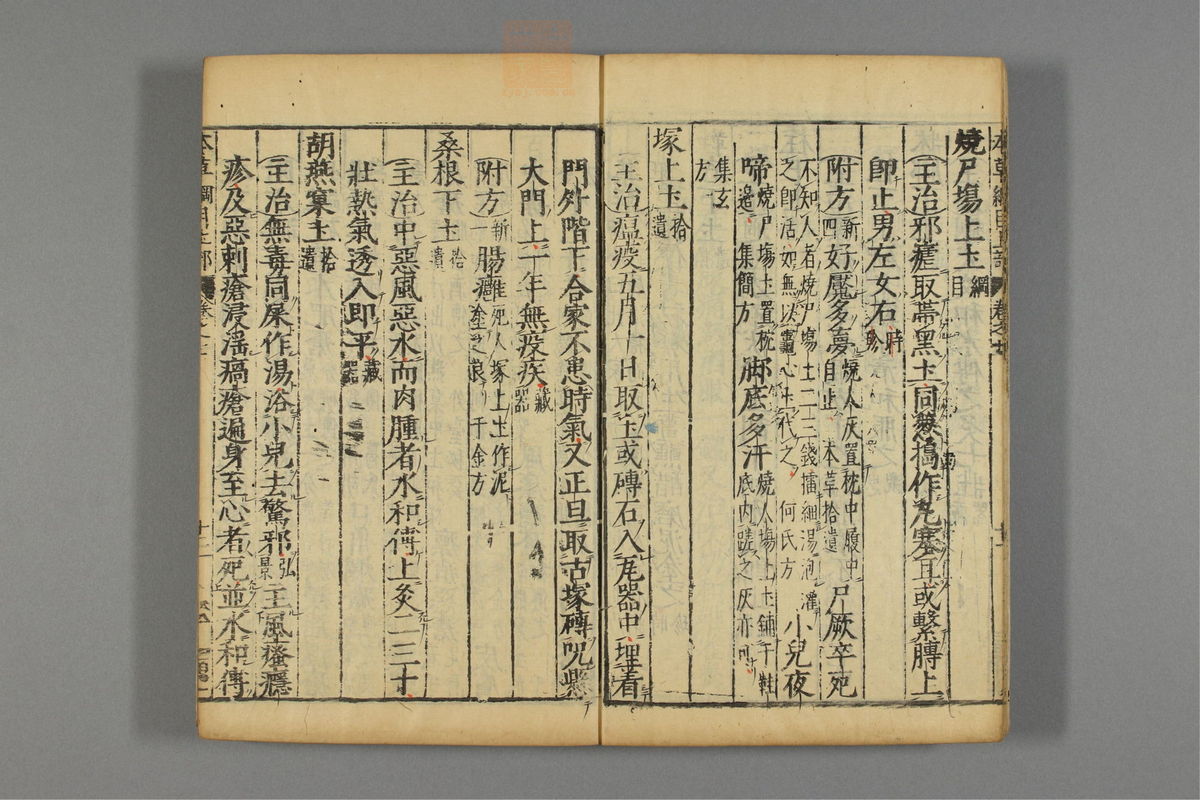 燒尸塲上土綱目
主治邪瘧取帶黑土同葱搗作丸塞耳或繫膊上
卽止男左女右時珍
附方新四好魘多夢燒人灰置枕中履中自止本草拾遺尸厥卒死
不知人者燒尸塲土二三錢擂細湯泡灌之即活如無以竈心土代之何氏方小兒夜
啼燒尸塲土置枕邊集簡方脚底多汗燒人塲上土鋪于鞋底內蹉之灰亦可
集玄方
塚上土拾遺
主治瘟疫五月一日取土或磚石入瓦器中埋着
門外階下合家不患時氣又正旦取古塚磚呪懸
大門上一年無疫疾藏器
附方新一腸癰死人塚上土作泥塗之良千金方
桑根下土拾遺
主治中惡風惡水而肉腫者水和傅上灸二三十
壯熱氣透入即平藏器
胡燕窠土拾遺
主治無毒同屎作湯浴小兒去驚邪弘景主風瘙癮
疹及惡刺瘡浸淫瘑瘡遍身至心者死並水和傅